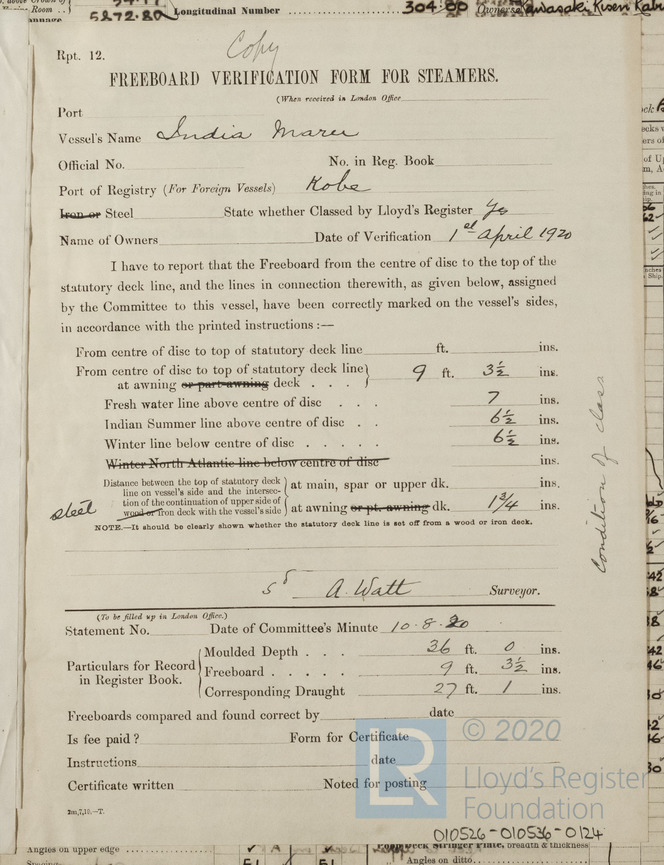 5872.80 Longitudinal Number 304.00 Owners Kawasaki Kisen
Copy
Rpt. 12.
FREEBOARD VERIFICATION FORM FOR STEAMERS.
(When received in London Office
Port
Vessel's Name India Maru
Official No. No. in Reg. Book
Port of Registry (For Foreign Vessels) Kobe
Iron or Steel State whether Classed by Lloyd's Register Yes
Name of Owners Date of Verification 1st April 1920
I have to report that the Freeboard from the centre of disc to the top of the
statutory deck line, and the lines in connection therewith, as given below, assigned
by the Committee to this vessel, have been correctly marked on the vessel's sides,
in accordance with the printed instructions :—
From centre of disc to top of statutory deck line ft. ins.
From centre of disc to top of statutory deck line
at awning or part-awning deck . . . 9 ft. 3½ ins.
Fresh water line above centre of disc . . . 7 ins.
Indian Summer line above centre of disc . . 6½ ins.
Winter line below centre of disc . . . . . 6½ ins.
Winter North Atlantic line below centre of disc ins.
Distance between the top of statutory deck
line on vessel's side and the intersec-
tion of the continuation of upper side of
wood or iron deck with the vessel's side
steel
at main, spar or upper dk. ins.
at awning or pt. awning dk. 1¾ ins.
NOTE.—It should be clearly shown whether the statutory deck line is set off from a wood or iron deck.
Condition of class
sd A. Watt Surveyor.
(To be filled up in London Office.)
Statement No. Date of Committee's Minute 10.8.20
Particulars for Record
in Register Book.
Moulded Depth . . . 36 ft. 0 ins.
Freeboard . . . . . 9 ft. 3½ ins.
Corresponding Draught 27 ft. 1 ins.
Freeboards compared and found correct by date
Is fee paid? Form for Certificate
Instructions date
Certificate written Noted for posting
2m,7,19.—T.
LR © 2020
Lloyd's Register
Foundation
010526-010536-0124
Angles on upper edge
Deck Stringer Plate, breadth & thickness
Angles on ditto